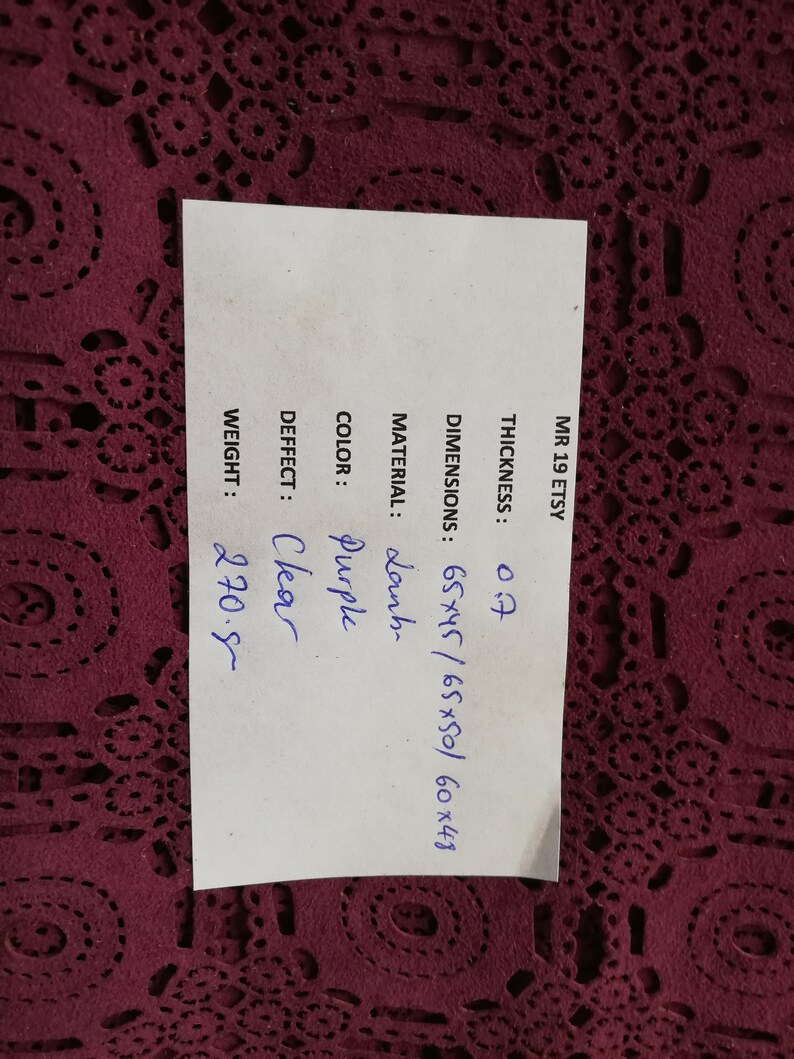 MR 19 ETSY
THICKNESS : 0.7
DIMENSIONS : 65x45 / 65x50 / 60x48
MATERIAL : Lamb
COLOR : Purple
DEFFECT : Clear
WEIGHT : 270.gr